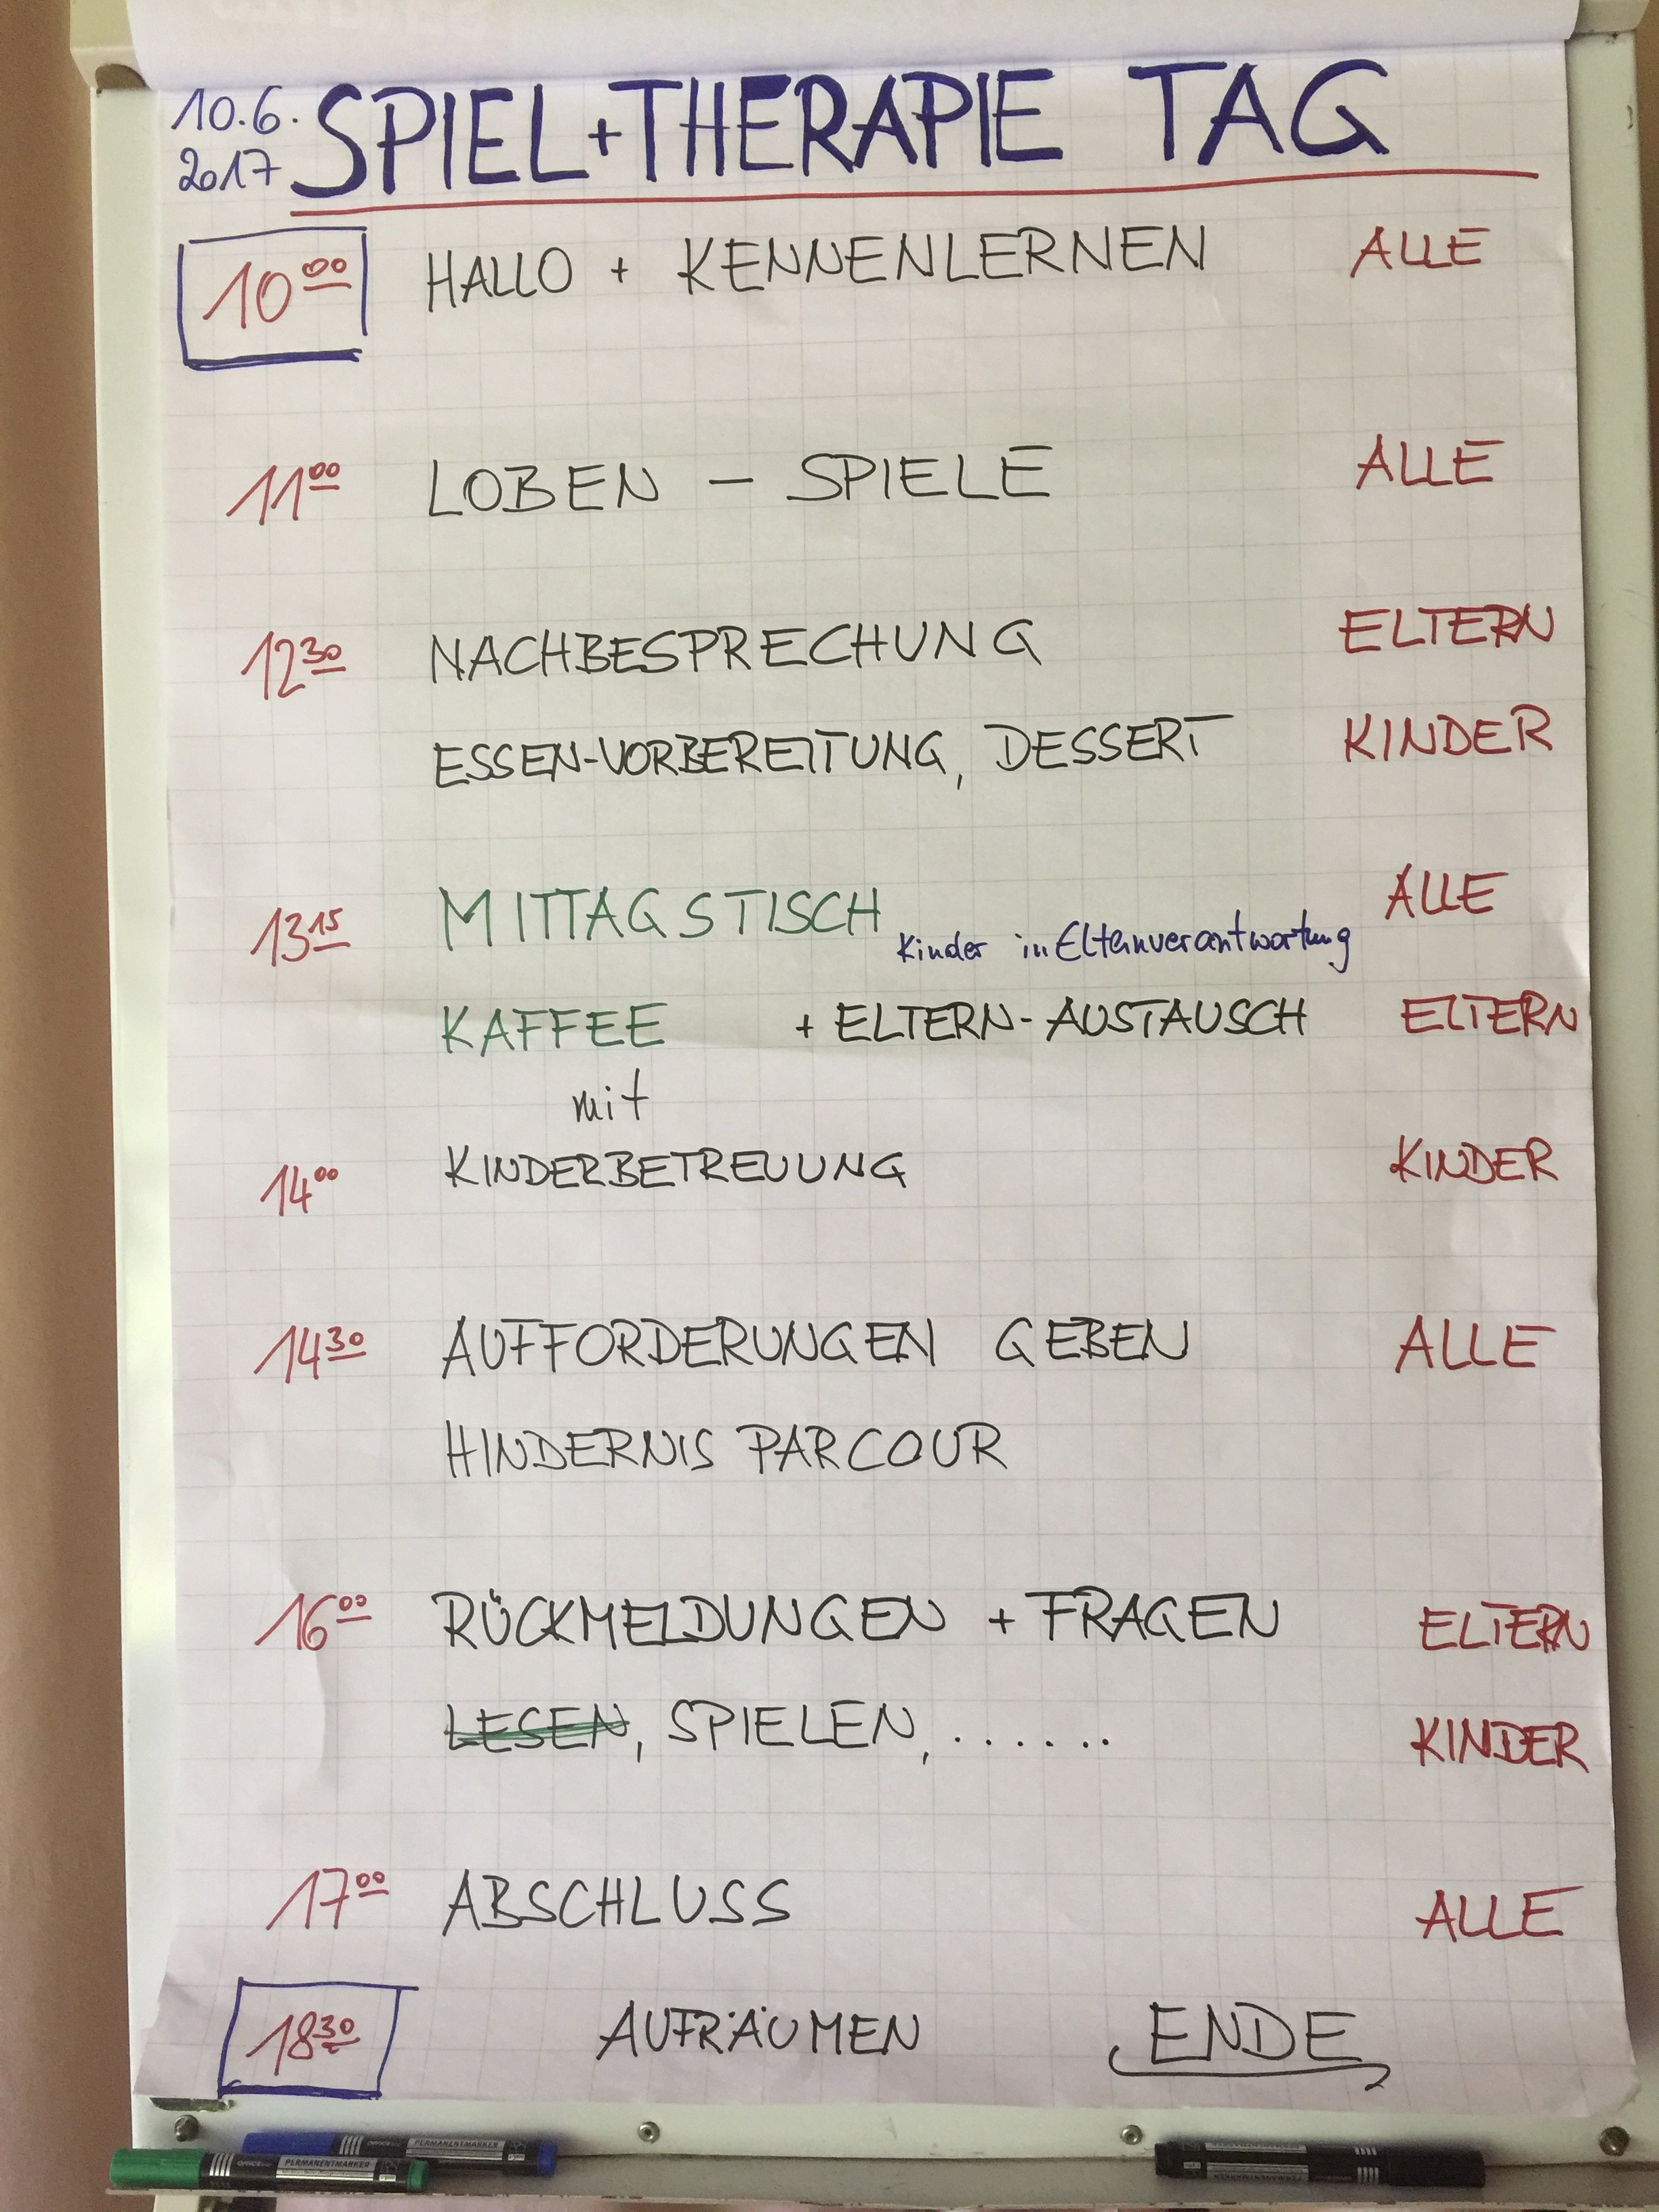 10.6. SPIEL+THERAPIE TAG
2017
10⁰⁰ HALLO + KENNENLERNEN ALLE
11⁰⁰ LOBEN – SPIELE ALLE
12³⁰ NACHBESPRECHUNG ELTERN
ESSEN-VORBEREITUNG, DESSERT KINDER
13¹⁵ MITTAGSTISCH ALLE
Kinder in Elternverantwortung
KAFFEE + ELTERN-AUSTAUSCH ELTERN
mit
14⁰⁰ KINDERBETREUUNG KINDER
14³⁰ AUFFORDERUNGEN GEBEN ALLE
HINDERNIS PARCOUR
16⁰⁰ RÜCKMELDUNGEN + FRAGEN ELTERN
LESEN, SPIELEN, ....... KINDER
17⁰⁰ ABSCHLUSS ALLE
18³⁰ AUFRÄUMEN ENDE
PERMANENTMARKER
PERMANENTMARKER